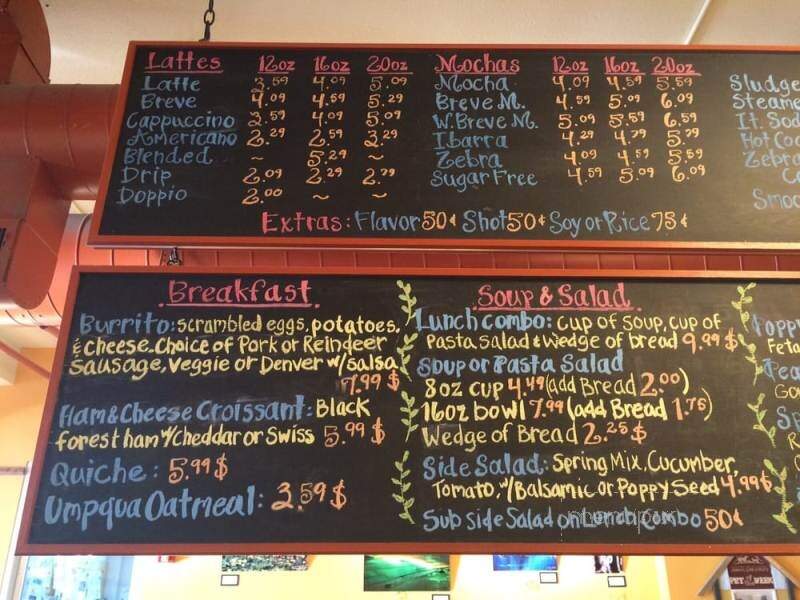 Lattes 12oz 16oz 20oz
Latte 3.59 4.09 5.09
Breve 4.09 4.59 5.29
Cappuccino 3.59 4.09 5.09
Americano 2.29 2.59 3.29
Blended ~ 5.29 ~
Drip 2.09 2.29 2.79
Doppio 2.00 ~ ~
Mochas 12oz 16oz 20oz
Mocha 4.09 4.59 5.59
Breve M. 4.59 5.09 6.09
W. Breve M. 5.09 5.59 6.59
Ibarra 4.29 4.79 5.79
Zebra 4.09 4.59 5.59
Sugar Free 4.59 5.09 6.09
Sludge
Steame
It. Sod
Hot Coc
Zebra
Smoo
Extras: Flavor 50¢ Shot 50¢ Soy or Rice 75¢
Breakfast
Burrito: scrambled eggs, potatoes,
& cheese. Choice of Pork or Reindeer
Sausage, Veggie or Denver w/salsa
7.99 $
Ham & Cheese Croissant: Black
forest ham w/Cheddar or Swiss 5.99 $
Quiche: 5.99 $
Umpqua Oatmeal: 3.59 $
Soup & Salad
Lunch combo: cup of soup, cup of
Pasta salad & wedge of bread 9.99 $
Soup or Pasta Salad
8oz cup 4.49 (add Bread 2.00)
16oz bowl 7.99 (add Bread 1.75)
Wedge of Bread 2.25 $
Side Salad: Spring Mix, Cucumber,
Tomato, w/Balsamic or Poppy Seed 4.99 $
Sub side Salad on Lunch Combo 50¢
Popp
Feta
PET WEEK